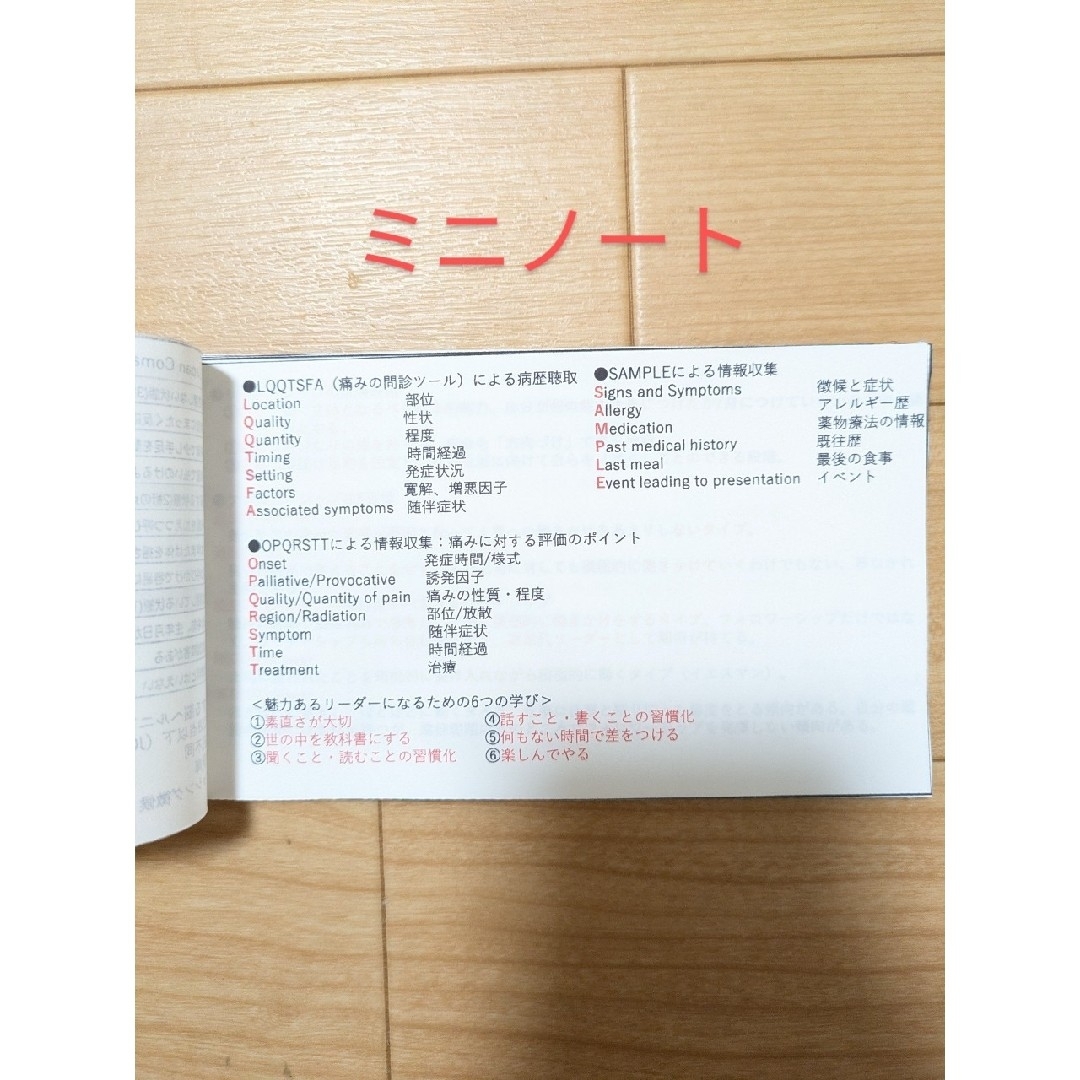 ミニノート
●LQQTSFA（痛みの問診ツール）による病歴聴取
Location 部位
Quality 性状
Quantity 程度
Timing 時間経過
Setting 発症状況
Factors 寛解、増悪因子
Associated symptoms 随伴症状
●SAMPLEによる情報収集
Signs and Symptoms 徴候と症状
Allergy アレルギー歴
Medication 薬物療法の情報
Past medical history 既往歴
Last meal 最後の食事
Event leading to presentation イベント
●OPQRSTTによる情報収集：痛みに対する評価のポイント
Onset 発症時間/様式
Palliative/Provocative 誘発因子
Quality/Quantity of pain 痛みの性質・程度
Region/Radiation 部位/放散
Symptom 随伴症状
Time 時間経過
Treatment 治療
＜魅力あるリーダーになるための6つの学び＞
①素直さが大切
②世の中を教科書にする
③聞くこと・読むことの習慣化
④話すこと・書くことの習慣化
⑤何もない時間で差をつける
⑥楽しんでやる